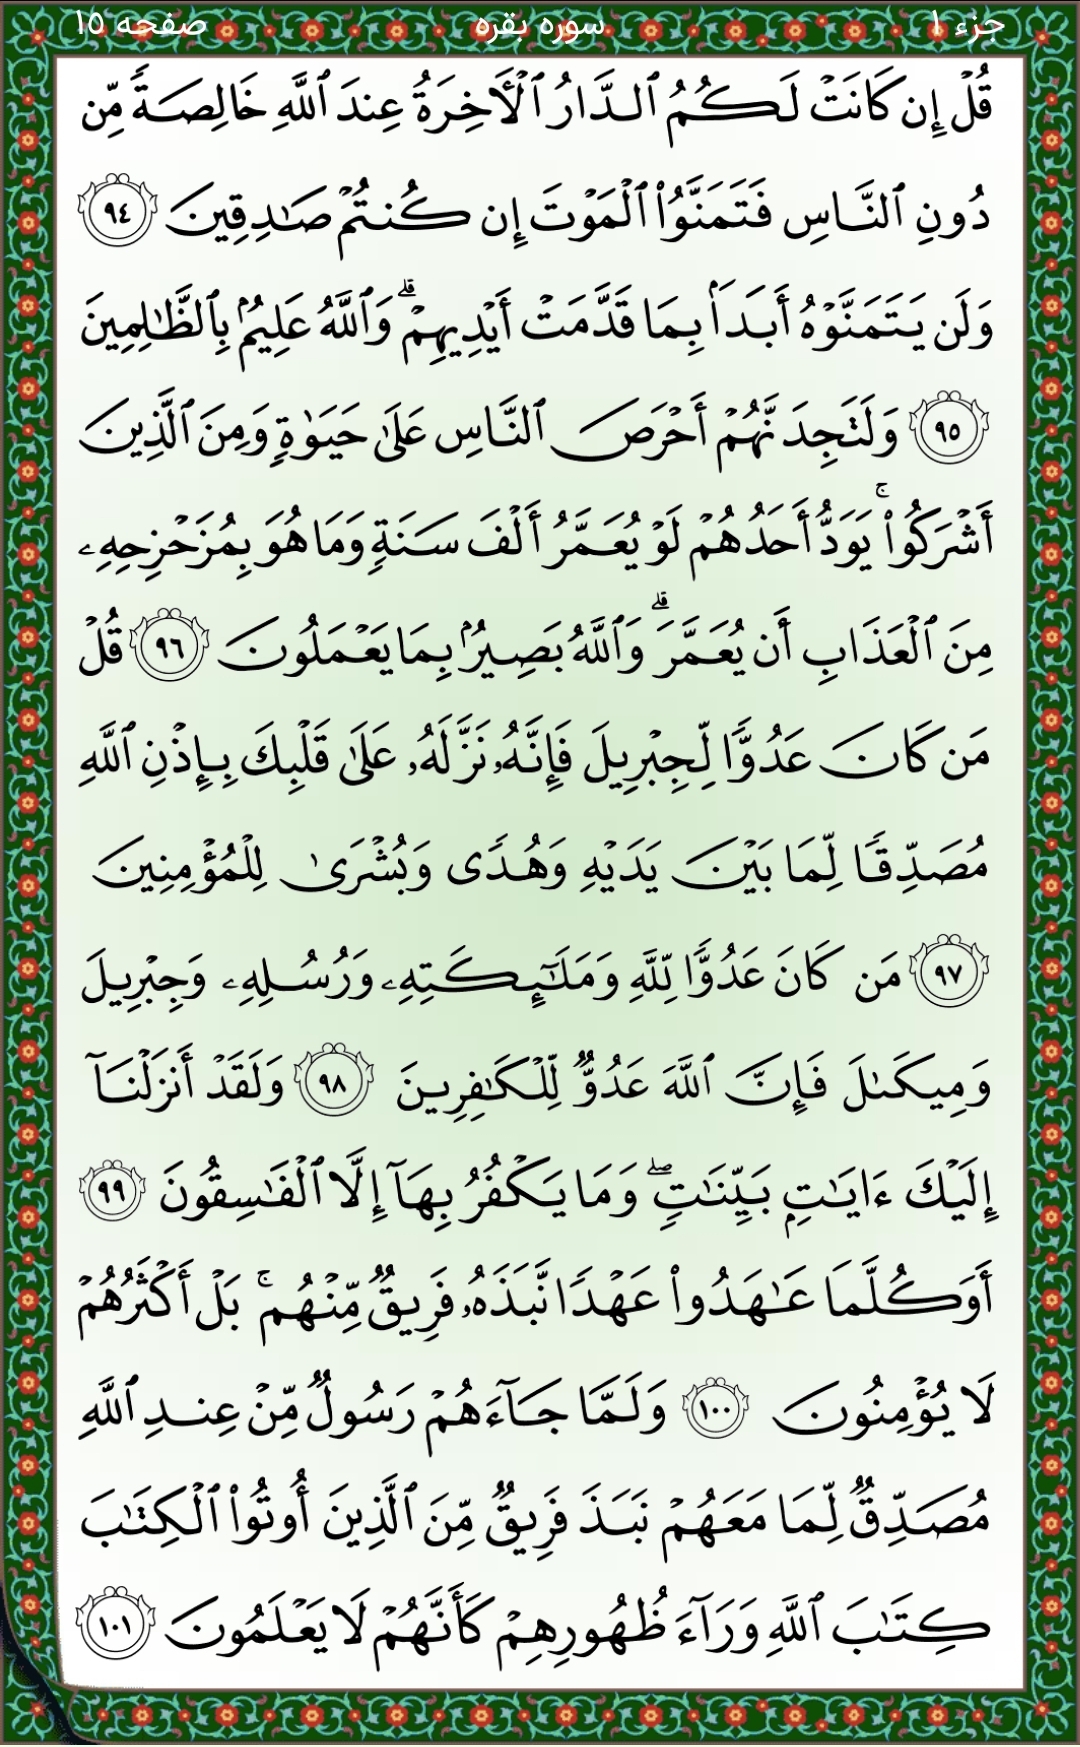 جزء ۱ سوره بقره صفحه ۱۵
قُلْ إِن كَانَتْ لَكُمُ ٱلدَّارُ ٱلْأَخِرَةُ عِندَ ٱللَّهِ خَالِصَةً مِّن
دُونِ ٱلنَّاسِ فَتَمَنَّوُا۟ ٱلْمَوْتَ إِن كُنتُمْ صَـٰدِقِينَ ٩٤
وَلَن يَتَمَنَّوْهُ أَبَدًۢا بِمَا قَدَّمَتْ أَيْدِيهِمْ ۗ وَٱللَّهُ عَلِيمٌۢ بِٱلظَّـٰلِمِينَ
٩٥ وَلَتَجِدَنَّهُمْ أَحْرَصَ ٱلنَّاسِ عَلَىٰ حَيَوٰةٍ وَمِنَ ٱلَّذِينَ
أَشْرَكُوا۟ ۚ يَوَدُّ أَحَدُهُمْ لَوْ يُعَمَّرُ أَلْفَ سَنَةٍ وَمَا هُوَ بِمُزَحْزِحِهِۦ
مِنَ ٱلْعَذَابِ أَن يُعَمَّرَ ۗ وَٱللَّهُ بَصِيرٌۢ بِمَا يَعْمَلُونَ ٩٦ قُلْ
مَن كَانَ عَدُوًّا لِّجِبْرِيلَ فَإِنَّهُۥ نَزَّلَهُۥ عَلَىٰ قَلْبِكَ بِإِذْنِ ٱللَّهِ
مُصَدِّقًا لِّمَا بَيْنَ يَدَيْهِ وَهُدًى وَبُشْرَىٰ لِلْمُؤْمِنِينَ
٩٧ مَن كَانَ عَدُوًّا لِّلَّهِ وَمَلَـٰٓئِكَتِهِۦ وَرُسُلِهِۦ وَجِبْرِيلَ
وَمِيكَىٰلَ فَإِنَّ ٱللَّهَ عَدُوٌّ لِّلْكَـٰفِرِينَ ٩٨ وَلَقَدْ أَنزَلْنَآ
إِلَيْكَ ءَايَـٰتٍۭ بَيِّنَـٰتٍ ۖ وَمَا يَكْفُرُ بِهَآ إِلَّا ٱلْفَـٰسِقُونَ ٩٩
أَوَكُلَّمَا عَـٰهَدُوا۟ عَهْدًا نَّبَذَهُۥ فَرِيقٌ مِّنْهُم ۚ بَلْ أَكْثَرُهُمْ
لَا يُؤْمِنُونَ ١٠٠ وَلَمَّا جَآءَهُمْ رَسُولٌ مِّنْ عِندِ ٱللَّهِ
مُصَدِّقٌ لِّمَا مَعَهُمْ نَبَذَ فَرِيقٌ مِّنَ ٱلَّذِينَ أُوتُوا۟ ٱلْكِتَـٰبَ
كِتَـٰبَ ٱللَّهِ وَرَآءَ ظُهُورِهِمْ كَأَنَّهُمْ لَا يَعْلَمُونَ ١٠١